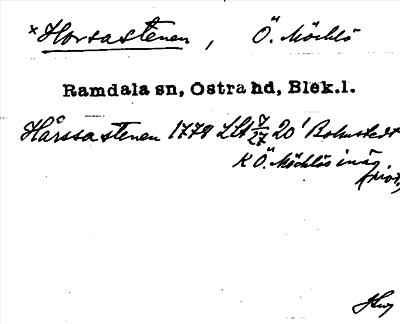 ×Horsastenen, Ö. Möcklö
Ramdala sn, Östra hd, Blek.l.
Hårssastenen 1779 Llt 7/27 20' Bolmstedt
K Ö. Möcklös inäg